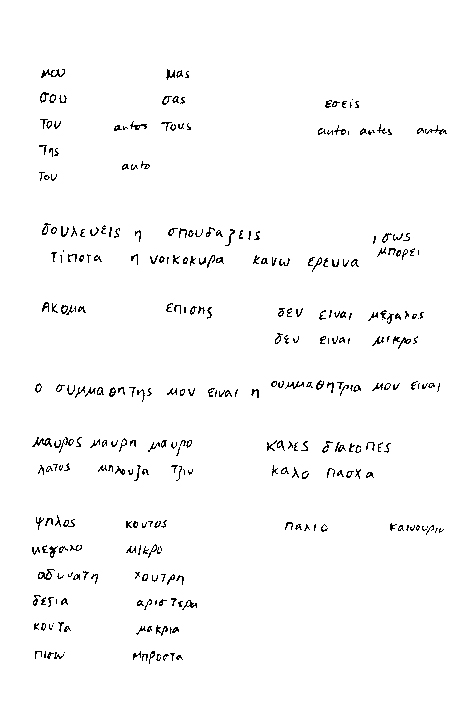 μου μας
σου σας εσεις
του autos τους autoi autes auta
της
του auto
δουλευεις η σπουδαζεις ισως
τιποτα η νοικοκυρα κανω ερευνα μπορει
Ακομα επισης δεν ειναι μεγαλος
δεν ειναι μικρος
ο συμμαθητης μου ειναι η συμμαθητρια μου ειναι
μαυρος μαυρη μαυρο καλες διακοπες
μπλουζα τζιν καλο πασχα
ψηλος κοντος παλιο
μεγαλο μικρο
αδυνατη χοντρη
δεξια αριστερα
κοντα μακρια
πισω μπροστα